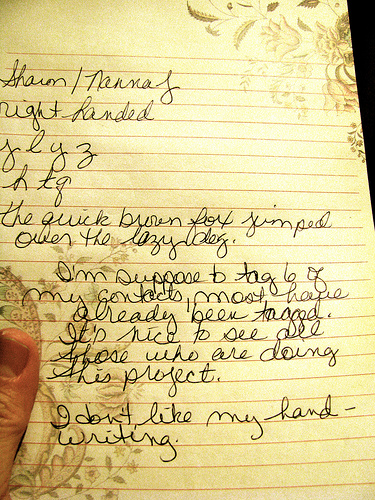 Sharon / Nannaj
right handed
y l y z
h t q
the quick brown fox jumped
over the lazy dog.
I'm suppose to tag 6 of
my contacts, most have
already been tagged.
It's nice to see all
those who are doing
this project.
I don't like my hand-
writing.